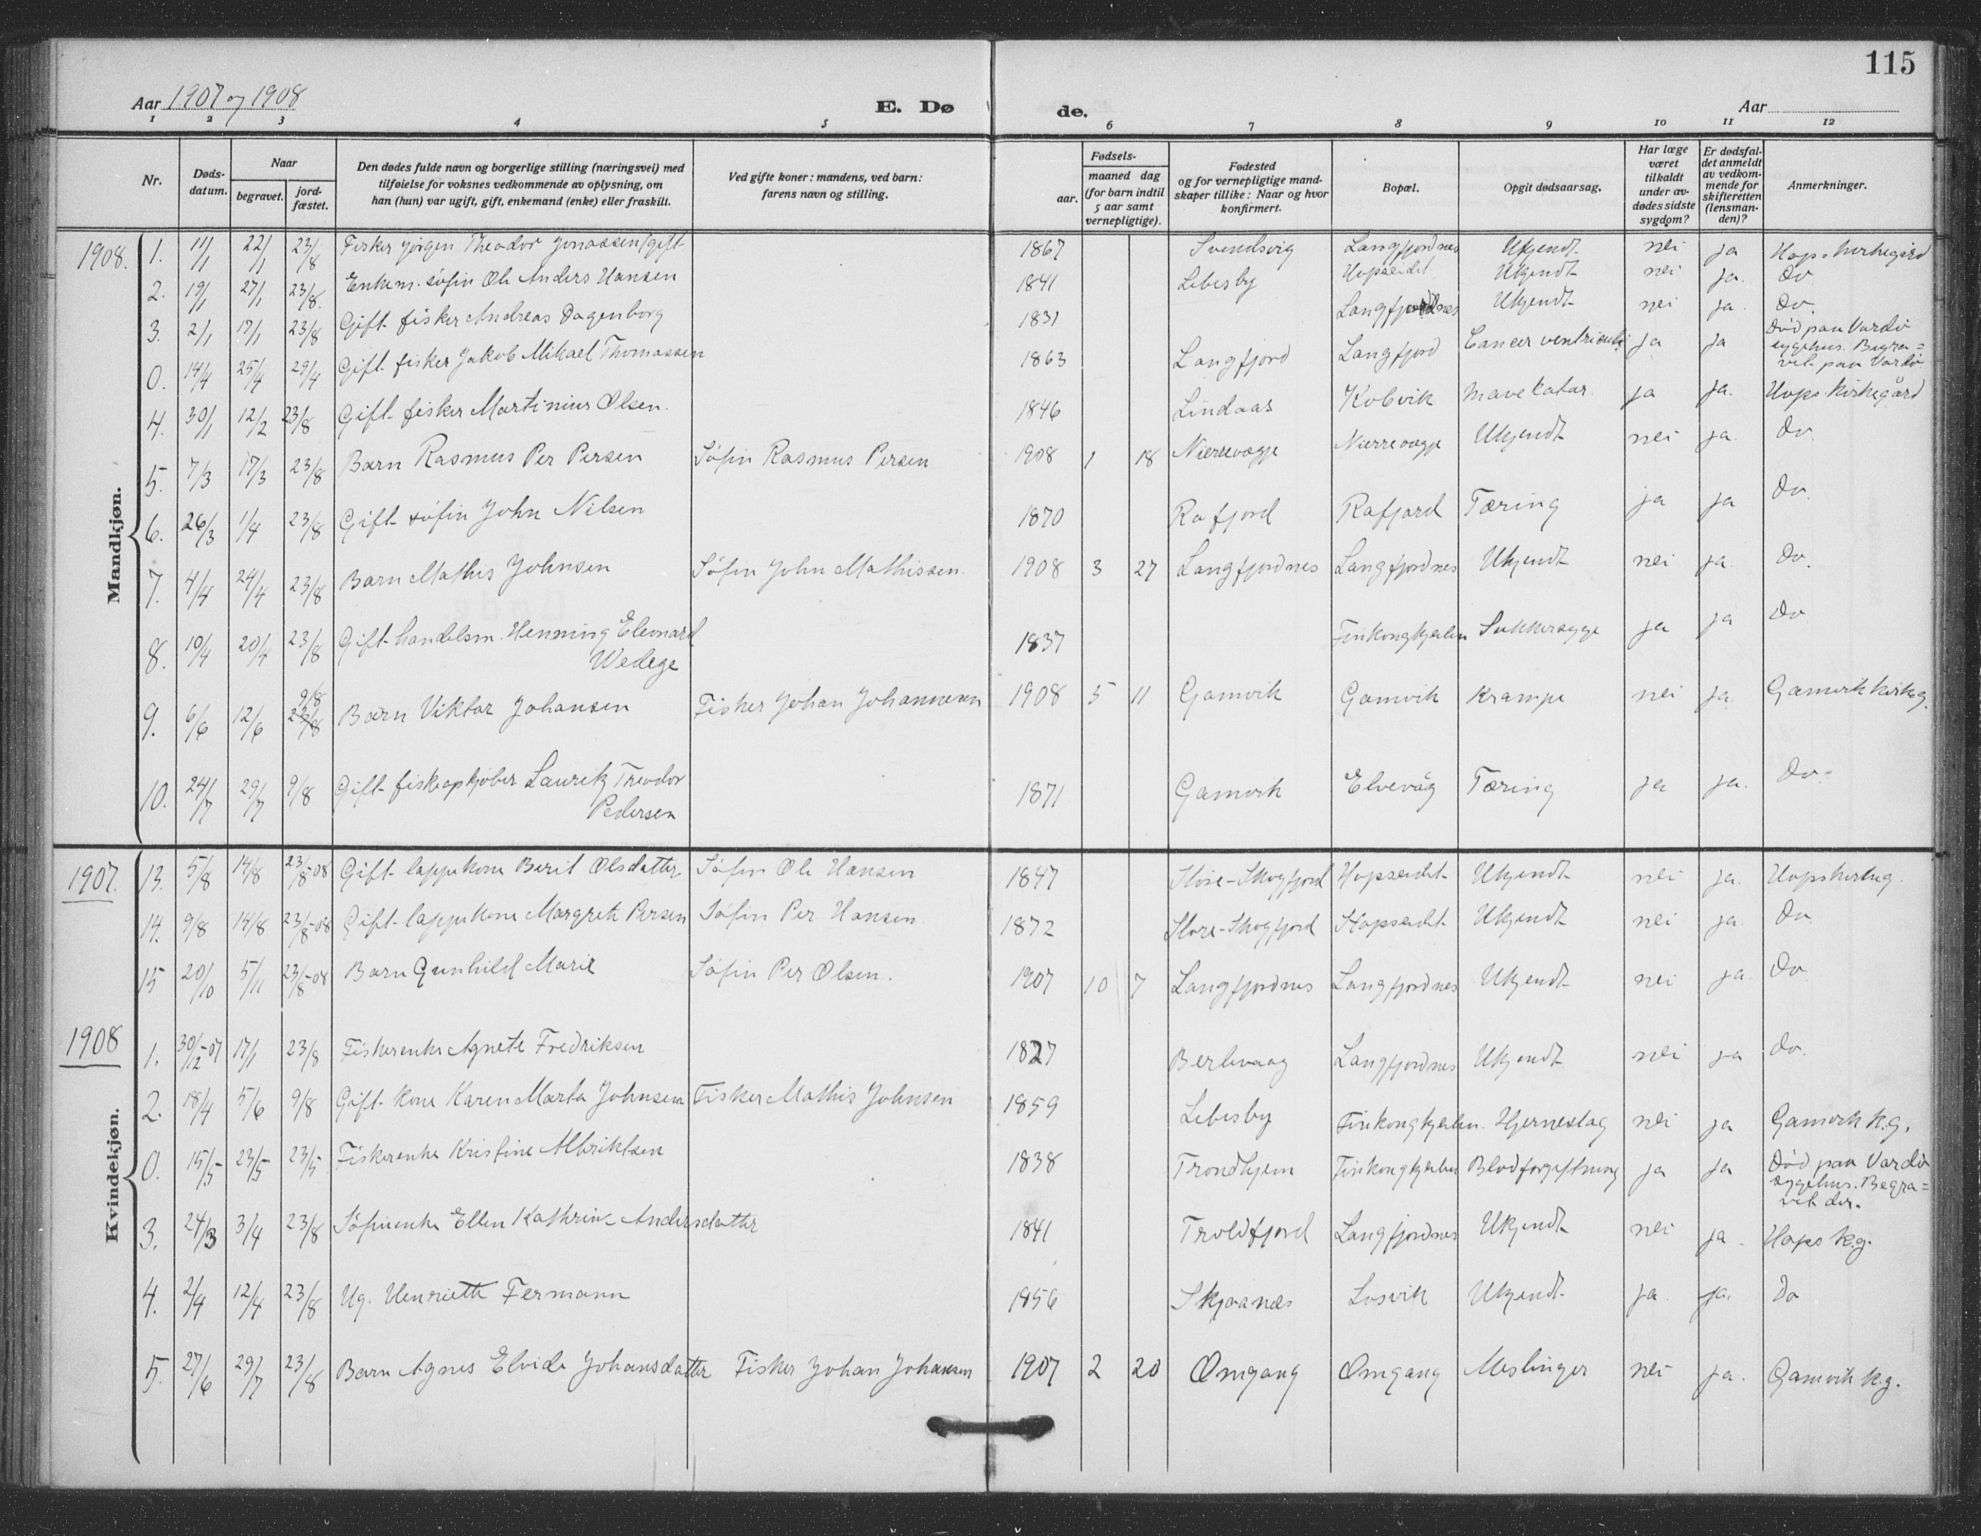 115
Aar 1907 og 1908 E. Dø de. Aar
1 2 3 4 5 6 7 8 9 10 11 12
Nr. Døds-datum. Naar begravet. jord-fæstet. Den dødes fulde navn og borgerlige stilling (næringsvei) med tilføielse for voksnes vedkommende av oplysning, om han (hun) var ugift, gift, enkemand (enke) eller fraskilt. Ved gifte koner: mandens, ved barn: farens navn og stilling. Fødsels- aar. maaned dag (for barn indtil 5 aar samt vernepligtige). Fødested og for vernepligtige mand-skaper tillike: Naar og hvor konfirmert. Bopæl. Opgit dødsaarsag. Har læge været tilkaldt under av-dødes sidste sygdom? Er dødsfal-det anmeldt av vedkom-mende for skifteretten (lensman-den)? Anmerkninger.
Mandkjøn.
1908. 1. 11/1 22/1 23/8 Fisker Jørgen Theodor Jonassen, gift 1867 Svendsvig Langfjordnes Ukjendt nei ja Hops kirkegård
2. 19/1 27/1 23/8. Enkem. søfin Ole Anders Hansen 1841 Lebesby Hopseidet Ukjendt nei ja. Do
3. 2/1 17/1 23/8 Gift fisker Andreas Dagenborg 1831 Langfjordnes Ukjendt nei ja. Do.
0. 14/4 25/4 29/4 Gift fisker Jakob Mikael Thomassen 1863 Langfjord Langfjord Cancer ventriculi ja ja Død paa Vardø
sygehus. Begra=
vet paa Vardø
4. 30/1 12/2 23/8 Gift fisker Martinius Olsen. 1846 Lindaas Kobvik Mavekatar. ja ja. Hops Kirkegård
5. 7/3 17/3 23/8 Barn Rasmus Per Persen Søfin Rasmus Persen 1908 1 18 Nierrevagge Nierrevagge Ukjendt nei ja. Do.
6. 26/3 1/4 23/8 Gift søfin John Nilsen 1870 Rafjord Rafjord Tæring ja ja Do.
7. 4/4 24/4 23/8 Barn Mathis Johnsen Søfin John Mathissen. 1908 3 27 Langfjordnes Langfjordnes Ukjendt nei ja. Do.
8. 10/4 20/4 23/8 Gift handelsm. Henning Eleonard 1837 Finkongkjeilen Sukkersyge ja ja Do
Wedege
9. 6/6 12/6 9/8 23/8 Barn Viktor Johansen Fisker Johan Johannesen 1908 5 11 Gamvik Gamvik Krampe nei ja. Gamvik kirkeg.
10. 24/7 29/7 9/8 Gift fiskeopkjøber Lauritz Theodor 1871 Gamvik Elvevåg Tæring ja ja. Do-
Pedersen
Kvindekjøn.
1907. 13. 5/8 14/8 23/8-08 Gift lappekone Berit Olsdatter Søfin Ole Hansen 1847 Store-Skogfjord Hopseidet Ukjendt nei ja. Hops kirkeg.
14. 9/8 14/8 23/8-08 Gift lappekone Margrete Persen Søfin Per Hansen 1872 Store-Skogfjord Hopseidet Ukjendt nei ja. Do
15 20/10 5/11 23/8-08 Barn Gunhild Marie Søfin Per Olsen. 1907 10 7 Langfjordnes Langfjordnes Ukjendt nei ja. Do
1908 1. 30/12-07 17/1 23/8 Fiskerenke Agnete Fredriksen 1827 Berlevaag Langfjordnes Ukjendt nei ja Do.
2. 18/4 5/6 9/8 Gift kone Karen Marta Johnsen Fisker Mathis Johnsen 1859 Lebesby Finkongkjeilen. Hjerneslag nei ja Gamvik k.g.
0. 15/5 23/5 23/5 Fiskerenke Kristine Albriktsen 1838 Trondhjem Finkongkjeilen Blodforgiftning ja ja Død paa Vardø
sygehus. Begra=
vet der.
3. 24/3 3/4 23/8 Søfinenke Ellen Kathrine Andersdatter 1841 Troldfjord Langfjordnes Ukjendt nei ja. Hops k.g.
4. 2/4 12/4 23/8 Ug. Henriette Fermann 1856 Skjaanæs Losvik Ukjendt. ja. ja. Do
5. 27/6 29/7 23/8 Barn Agnes Elvide Johansdatter Fisker Johan Johansen 1907 2 20 Omgang Omgang Meslinger nei ja. Gamvik k.g.